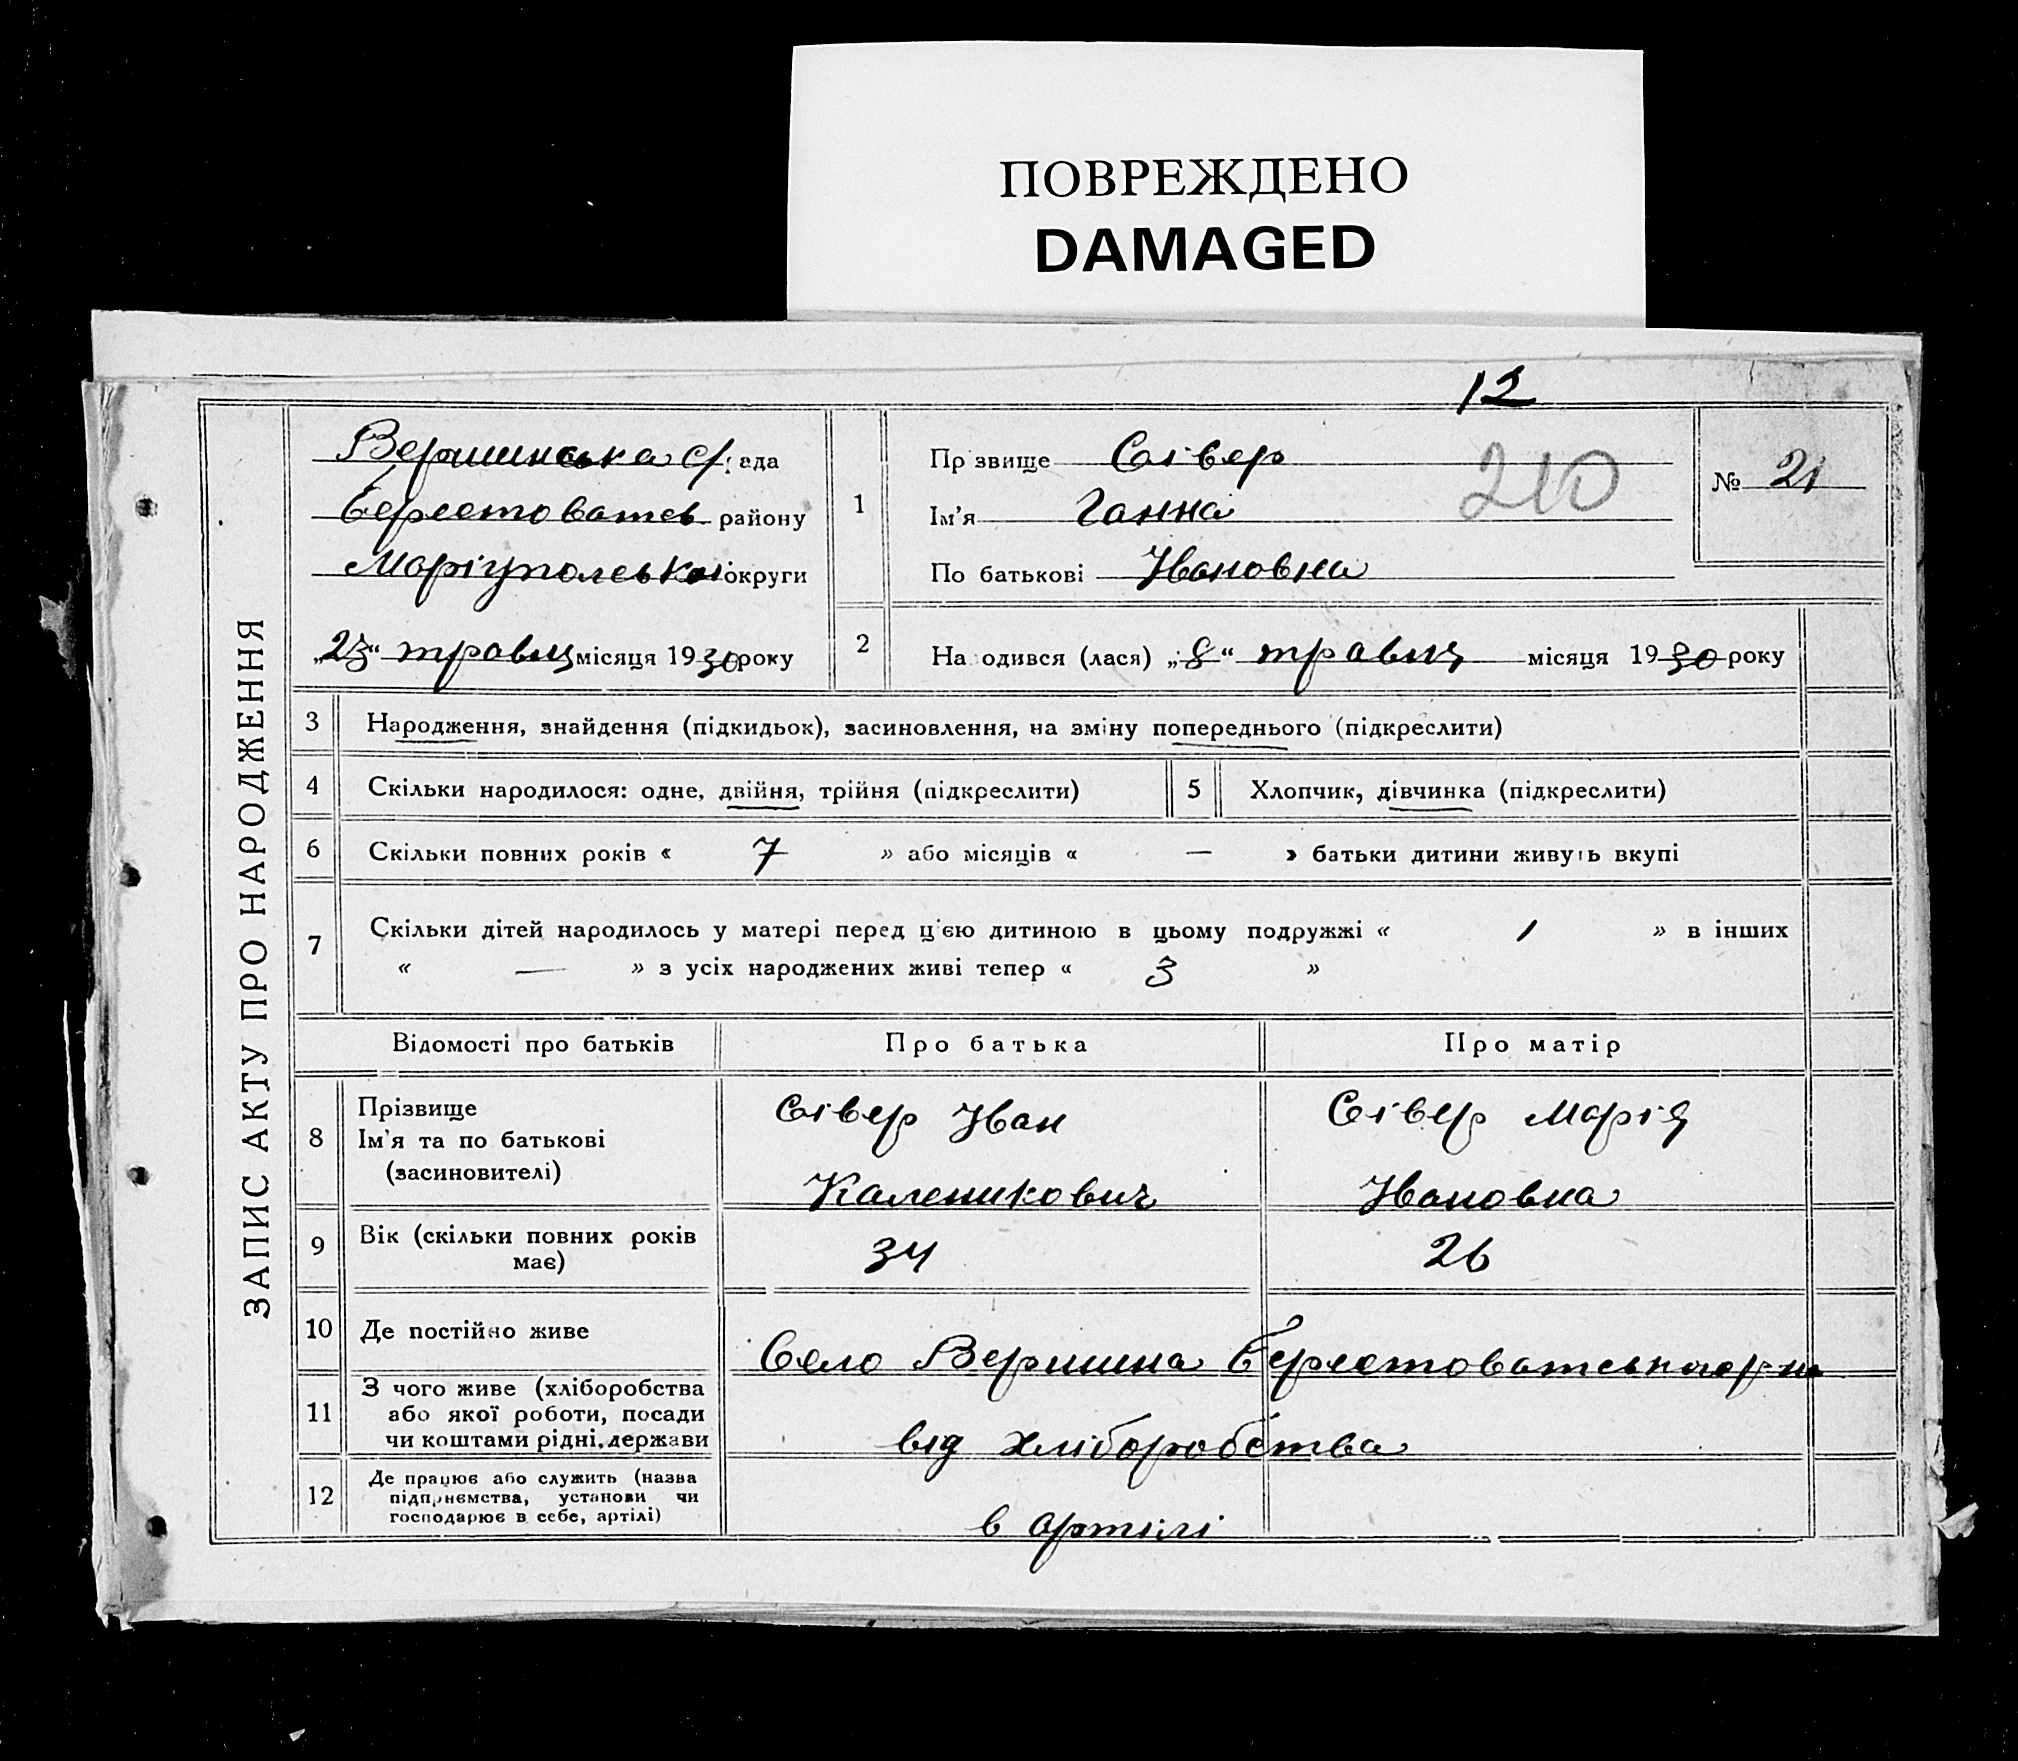 ПОВРЕЖДЕНО
DAMAGED
12
ЗАПИС АКТУ ПРО НАРОДЖЕННЯ
Вершинська с/рада
Берестоватськ району
Маріупольської округи
„23“ травня місяця 1930 року
1
Прізвище Сівер
Ім'я Ганна
По батькові Івановна
210
№ 21
2
На одився (лася) „8“ травня місяця 1930 року
3 Народження, знайдення (підкидьок), засиновлення, на зміну попереднього (підкреслити)
4 Скільки народилося: одне, двійня, трійня (підкреслити)
5 Хлопчик, дівчинка (підкреслити)
6 Скільки повних років « 7 » або місяців « — » батьки дитини живуть вкупі
7 Скільки дітей народилось у матері перед цією дитиною в цьому подружжі « 1 » в інших
« — » з усіх народжених живі тепер « 3 »
Відомості про батьків Про батька Про матір
8 Прізвище
Ім'я та по батькові
(засиновителі)
Сівер Іван
Каленикович
Сівер Марія
Івановна
9 Вік (скільки повних років
має)
34 26
10 Де постійно живе
Село Вершина Берестоватського р-ну
11 З чого живе (хліборобства
або якої роботи, посади
чи коштами рідні, держави
від хліборобства
12 Де працює або служить (назва
підприємства, установи чи
господарює в себе, артілі)
в артілі